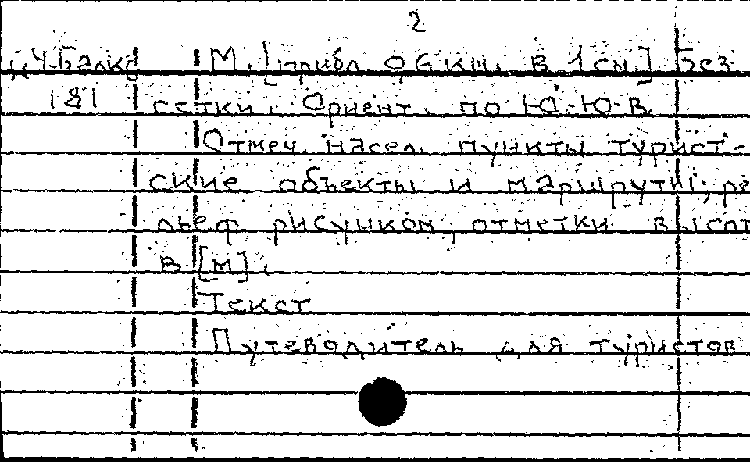 2
Ч-Балк М. [прибл. 0,6 км. в 1 см.] Без
181 сетки. Ориент. по Ю-Ю-В.
Отмеч. насел. пункты турист-
ские объекты и маршруты; ре
льеф рисунком, отметки высот
в [м].
Текст
Путеводитель для туристов